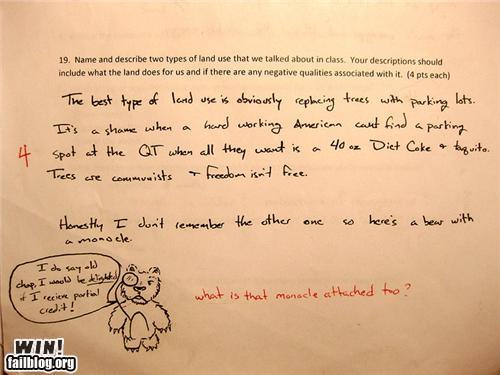 19. Name and describe two types of land use that we talked about in class. Your descriptions should
include what the land does for us and if there are any negative qualities associated with it. (4 pts each)
The best type of land use is obviously replacing trees with parking lots.
It's a shame when a hard working American can't find a parking
4
spot at the QT when all they want is a 40 oz Diet Coke & taquito.
Trees are communists & freedom isn't free.
Honestly I don't remember the other one so here's a bear with
a monocle.
I do say old
chap, I would be delighted
if I recieve partial
credit!
what is that monocle attached too?
WIN!
failblog.org